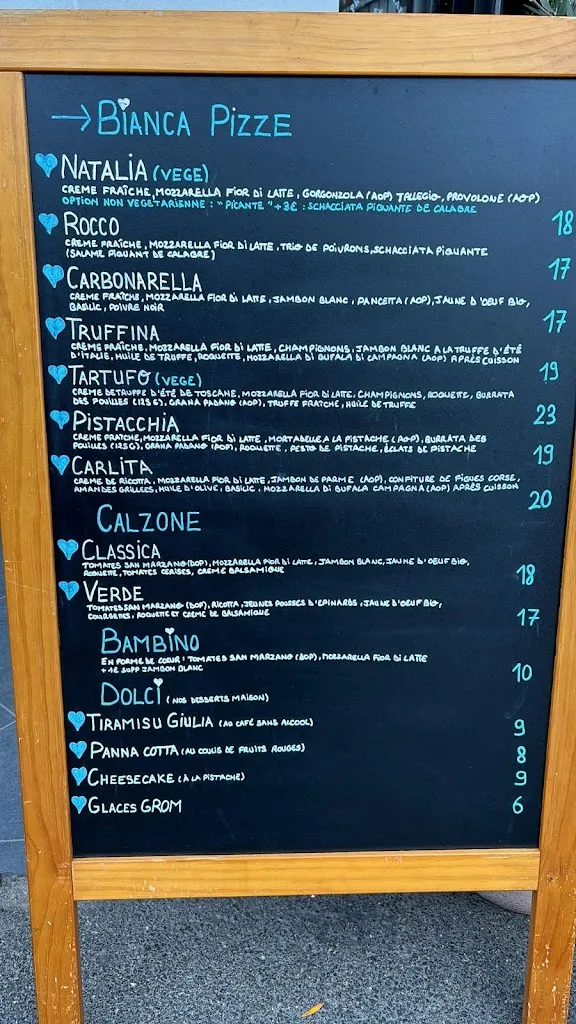 → BIANCA PIZZE
NATALIA (VEGE)
CREME FRAÎCHE, MOZZARELLA FIOR DI LATTE, GORGONZOLA (AOP) TALLEGIO, PROVOLONE (AOP)
OPTION NON VEGETARIENNE : "PICANTE" +3€ : SCHACCIATA PIQUANTE DE CALABRE
18
ROCCO
CREME FRAÎCHE, MOZZARELLA FIOR DI LATTE, TRIO DE POIVRONS, SCHACCIATA PIQUANTE
(SALAME PIQUANT DE CALABRE)
17
CARBONARELLA
CREME FRAÎCHE, MOZZARELLA FIOR DI LATTE, JAMBON BLANC, PANCETTA (AOP), JAUNE D'OEUF BIO,
BASILIC, POIVRE NOIR
17
TRUFFINA
CREME FRAÎCHE, MOZZARELLA FIOR DI LATTE, CHAMPIGNONS, JAMBON BLANC A LA TRUFFE D'ÉTÉ
D'ITALIE, HUILE DE TRUFFE, ROQUETTE, MOZZARELLA DI BUFALA DI CAMPAGNA (AOP) APRÈS CUISSON
19
TARTUFO (VEGE)
CREME DE TRUFFE D'ÉTÉ DE TOSCANE, MOZZARELLA FIOR DI LATTE, CHAMPIGNONS, ROQUETTE, BURRATA
DES POUILLES (125G), GRANA PADANO (AOP), TRUFFE FRAICHE, HUILE DE TRUFFE
23
PISTACCHIA
CREME FRAICHE, MOZZARELLA FIOR DI LATTE, MORTADELLE A LA PISTACHE (AOP), BURRATA DES
POUILLES (125G), GRANA PADANO (AOP), ROQUETTE, PESTO DE PISTACHE, ÉCLATS DE PISTACHE
19
CARLITA
CREME DE RICOTTA, MOZZARELLA FIOR DI LATTE, JAMBON DE PARME (AOP), CONFITURE DE FIGUES CORSE,
AMANDES GRILLEES, HUILE D'OLIVE, BASILIC, MOZZARELLA DI BUFALA CAMPAGNA (AOP) APRÈS CUISSON
20
CALZONE
CLASSICA
TOMATES SAN MARZANO (DOP), MOZZARELLA FIOR DI LATTE, JAMBON BLANC, JAUNE D'OEUF BIO,
ROQUETTE, TOMATES CERISES, CREME BALSAMIQUE
18
VERDE
TOMATES SAN MARZANO (DOP), RICOTTA, JEUNES POUSSES D'EPINARDS, JAUNE D'OEUF BIO,
COURGETTES, ROQUETTE ET CREME DE BALSAMIQUE
17
BAMBINO
EN FORME DE COEUR : TOMATES SAN MARZANO (DOP), MOZZARELLA FIOR DI LATTE
+1€ SUPP JAMBON BLANC
10
DOLCI (NOS DESSERTS MAISON)
TIRAMISU GIULIA (AU CAFÉ SANS ALCOOL)
9
PANNA COTTA (AU COULIS DE FRUITS ROUGES)
8
CHEESECAKE (À LA PISTACHE)
9
GLACES GROM
6